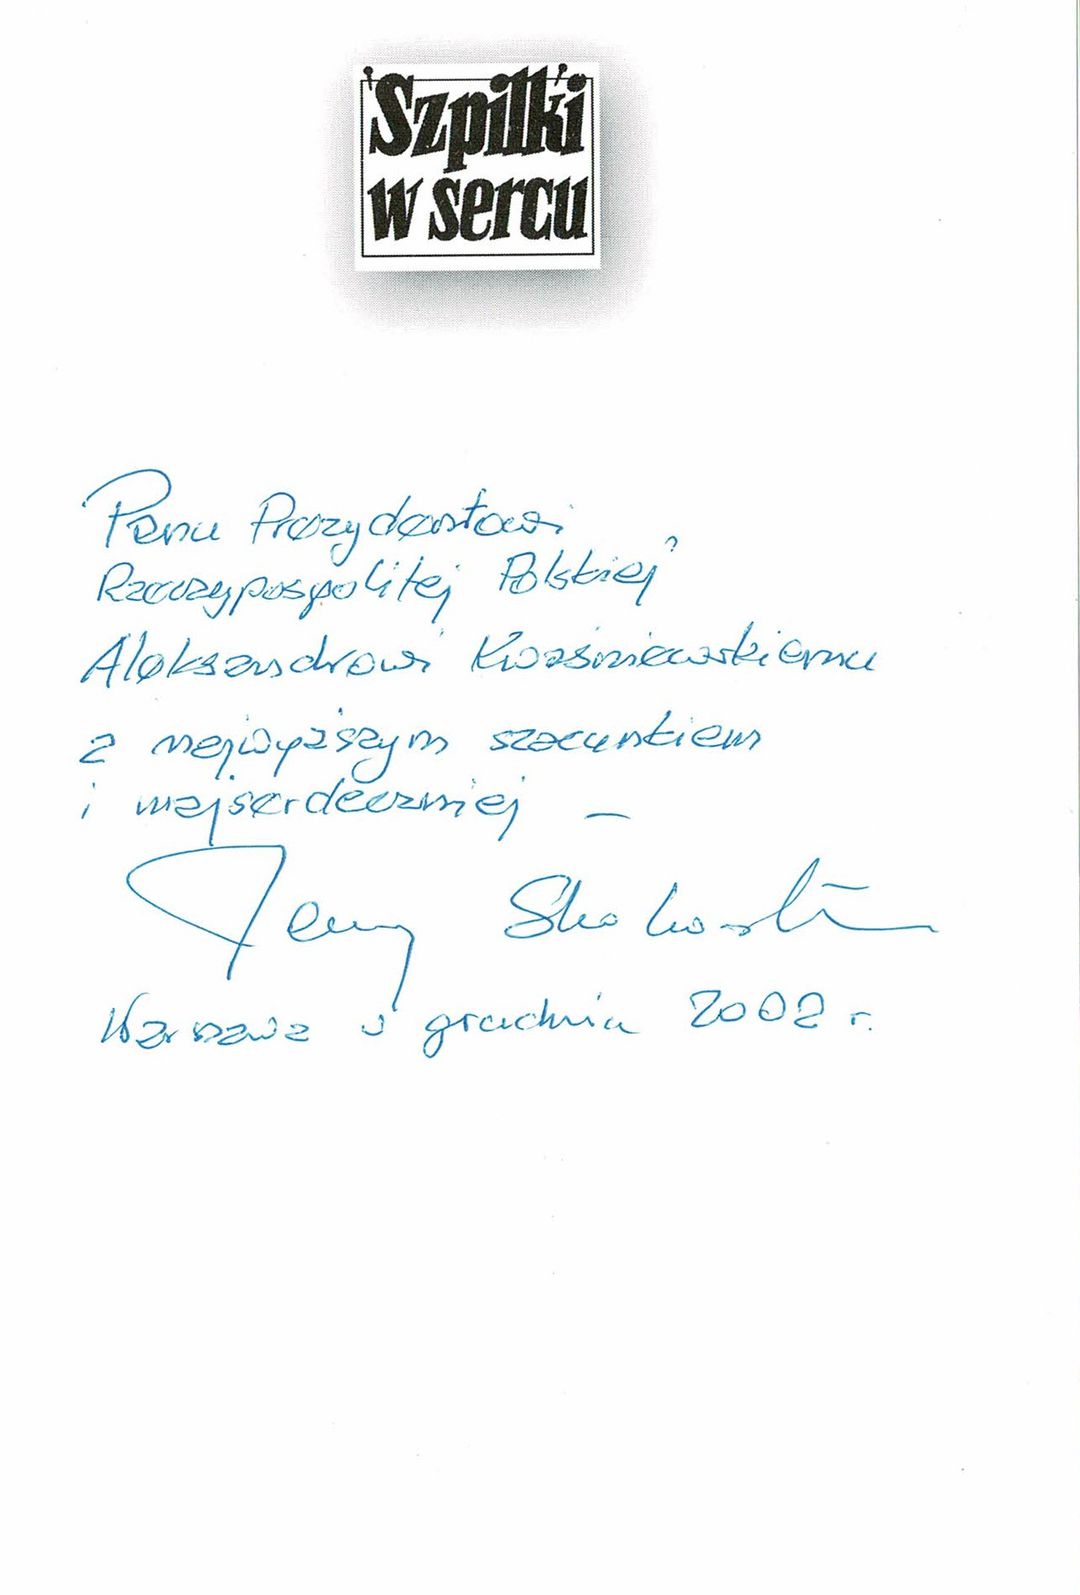 Szpilki
w sercu
Panu Prezydentowi
Rzeczypospolitej Polskiej
Aleksandrowi Kwaśniewskiemu
z najwyższym szacunkiem
i najserdeczniej –
Jerzy
Warszawa w grudniu 2002 r.